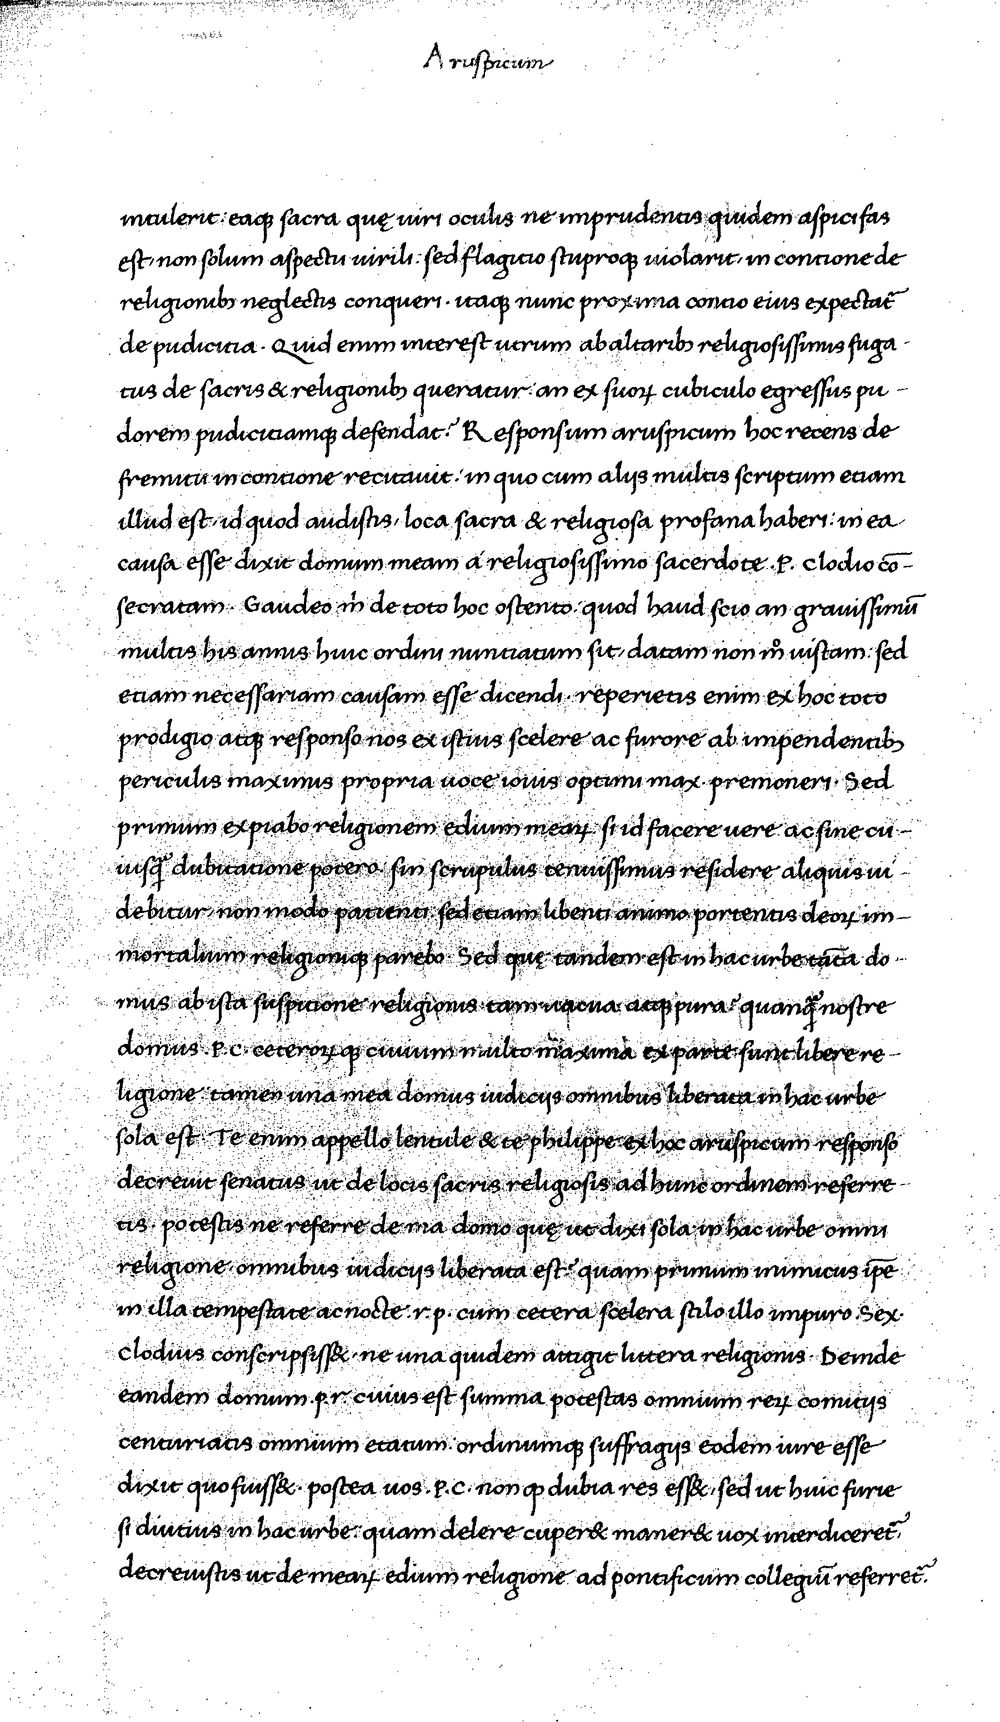 Aruspicum
intulerit: eaqꝫ sacra quę uiri oculis ne imprudentis quidem aspici fas
est, non solum aspectu uirili: sed flagitio stuproqꝫ uiolarit, in contione de
religionibꝫ neglectis conqueri. itaqꝫ nunc proxima contio eius expectat᷑
de pudicitia. Quid enim interest utrum ab altaribꝫ religiosissimus fuga-
tus de sacris & religionibꝫ queratur. an ex suoꝝ cubiculo egressus pu-
dorem pudicitiamqꝫ defendat? Responsum aruspicum hoc recens de
fremitu in contione recitauit: in quo cum alijs multis scriptum etiam
illud est, id quod audistis, loca sacra & religiosa profana haberi: in ea
causa esse dixit domum meam a religiosissimo sacerdote .P. clodio cō-
secratam. Gaudeo m̓ de toto hoc ostento. quod haud scio an grauissimū
multis his annis huic ordini nuntiatum sit, datam non mͦ uistam: sed
etiam necessariam causam esse dicendi. reperietis enim ex hoc toto
prodigio atqꝫ responso nos ex istius scelere ac furore ab impendentibꝫ
periculis maximis propria uoce iouis optimi max. premoneri. Sed
primum expiabo religionem edium meaꝝ. si id facere uere ac sine cu-
iusq̄ dubitatione potero. sin scrupulus tenuissimus residere aliquis ui-
debitur, non modo patienti. sed etiam libenti animo portentis deoꝝ im-
mortalium religioniqꝫ parebo. Sed quę tandem est in hac urbe tāta do-
mus ab ista suspicione religionis tam uacua atqꝫ pura? quanq̄ nostre
domus .P.C. ceteroꝝqꝫ ciuium multo maxima ex parte sunt libere re-
ligione. tamen una mea domus iudicijs omnibus liberata in hac urbe
sola est. Te enim appello lentule & te philippe ex hoc aruspicum responso
decreuit senatus ut de locis sacris religiosis ad hunc ordinem referre-
tis. potestis ne referre de ma domo quę ut dixi sola in hac urbe omni
religione, omnibus iudicijs liberata est? quam primum inimicus ip̄e
in illa tempestate ac nocte .r.p. cum cetera scelera stilo illo impuro .Sex.
clodius conscripsiss&. ne una quidem attigit littera religionis. Deinde
eandem domum .p.r. cuius est summa potestas omnium reꝝ comitijs
centuriatis omnium etatum. ordinumqꝫ suffragijs eodem iure esse
dixit quo fuiss&. postea uos .P.C. non ꝙ dubia res ess&, sed ut huic furie
si diutius in hac urbe: quam delere cuper& maner& uox interdiceret᷑,
decreuistis ut de meaꝝ edium religione ad pontificum collegiū referret᷑.